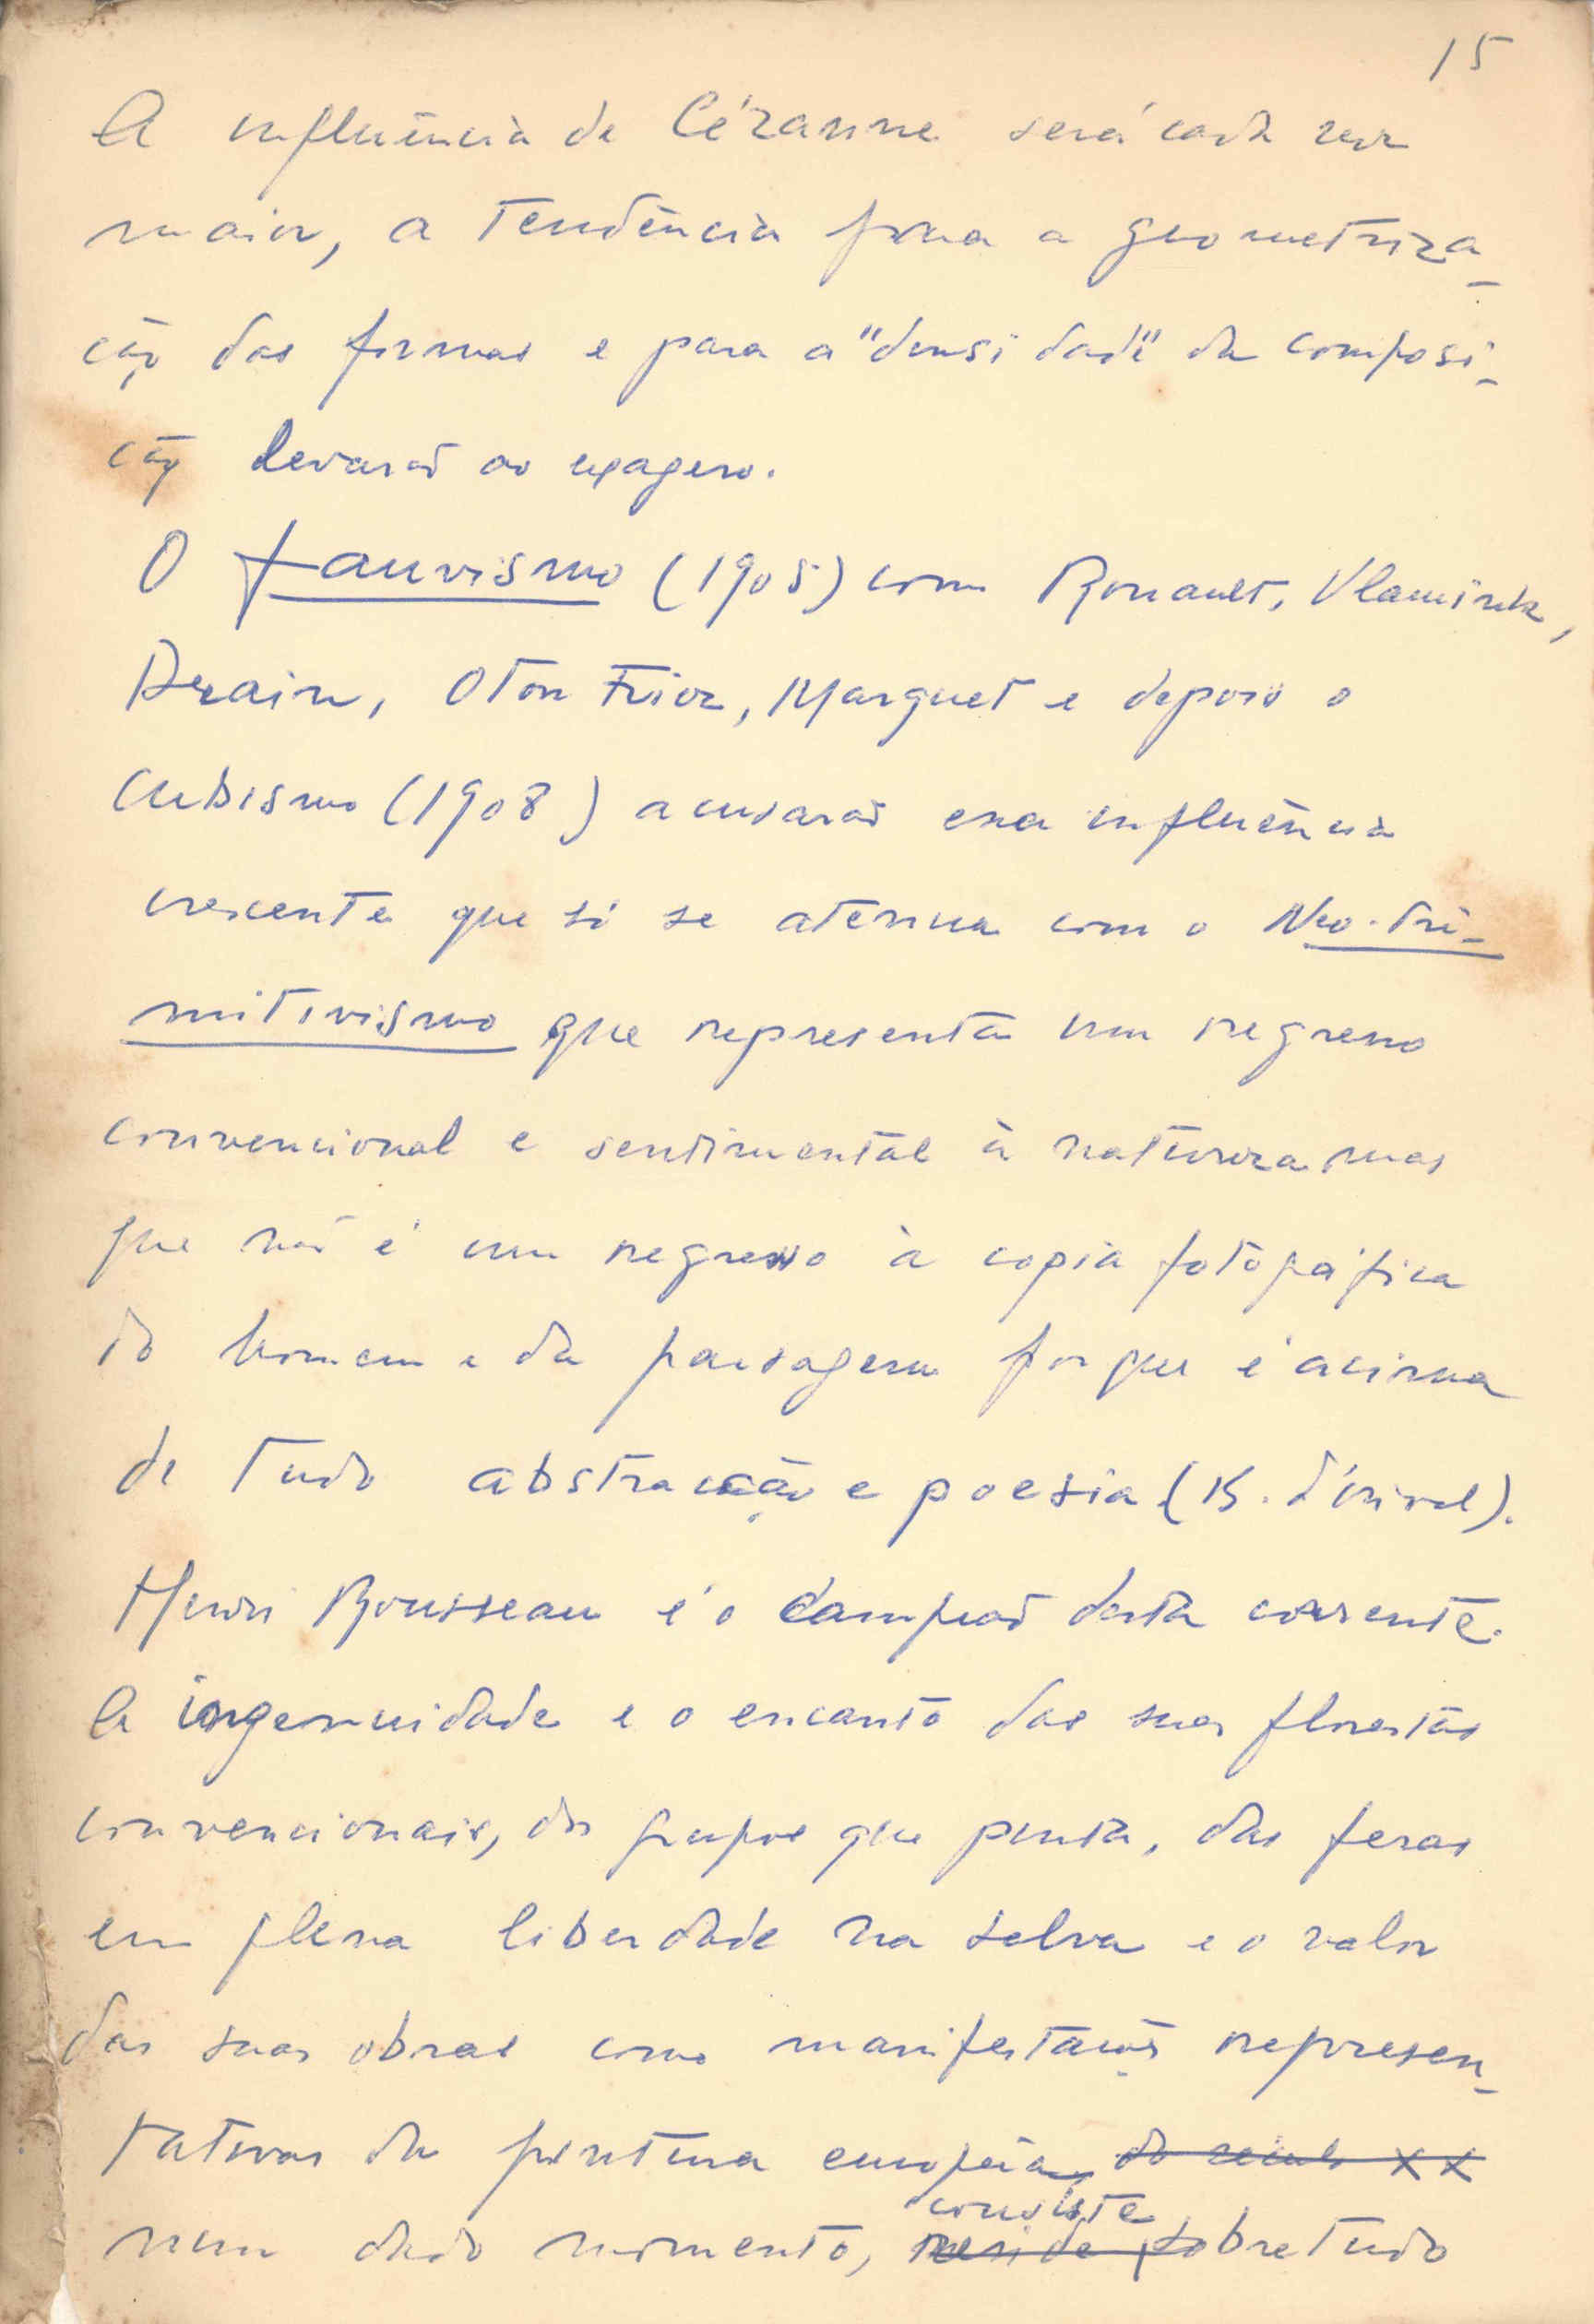 15
A influência de Cézanne será cada vez
maior, a tendência para a geometriza-
ção das formas e para a "densidade" da composi-
ção levarão ao exagero.
O fauvismo (1905) com Rouault, Vlamink,
Derain, Oton Friez, Marquet e depois o
Cubismo (1908) acusarão essa influência
crescente que só se atenua com o Neo-Pri-
mitivismo que representa um regresso
convencional e sentimental à natureza mas
que não é um regresso à copia fotográfica
do homem e da paisagem porque é acima
de tudo abstracção e poesia (B. d'Orival).
Henri Rousseau é o campeão desta corrente.
A ingenuidade e o encanto das suas florestas
convencionais, dos grupos que pinta, das feras
em plena liberdade na selva e o valor
das suas obras como manifestações represen-
tativas da pintura européia, do seculo XX
consiste
num dado momento, reside sobretudo